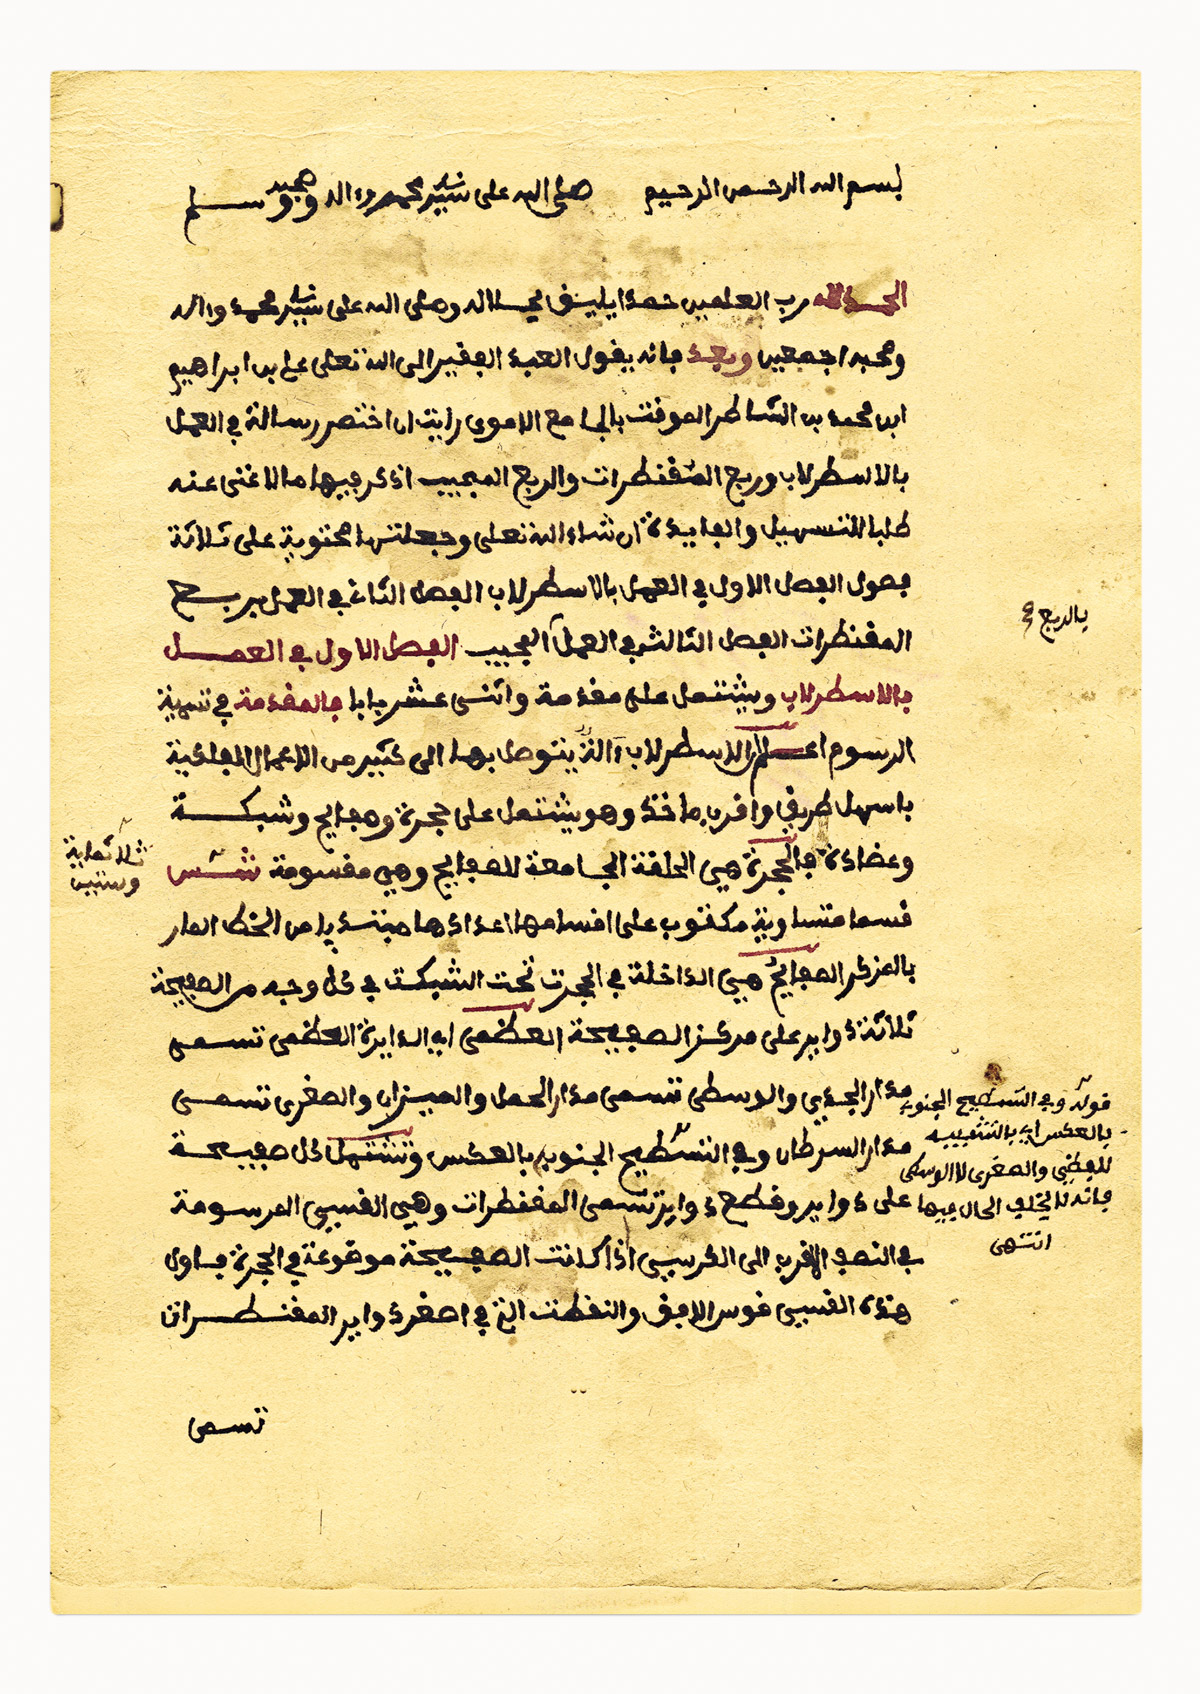 بسم الله الرحمن الرحيم صلى الله على سيدنا محمد وءاله وصحبه وسلم
الحمد لله رب العلمين حمدا يليق بجلاله وصلى الله على سيدنا محمد واله
وصحبه اجمعين وبعد فانه يقول العبد الفقير الى الله تعلى علي بن ابراهيم
ابن محمد بن الشاطر الموقت بالجامع الاموي رايت ان اختصر رسالة في العمل
بالاسطرلاب وربع المقنطرات والربع المجيب اذكر فيها ما لا غنى عنه
طلبا للتسهيل والفايدة ان شاء الله تعلى وجعلتها محتوية على ثلاثة
فصول الفصل الاول في العمل بالاسطرلاب الفصل الثاني في العمل بربع
المقنطرات الفصل الثالث في العمل المجيب الفصل الاول في العمل
بالربع صح
بالاسطرلاب ويشتمل على مقدمة واثنى عشر بابا فالمقدمة في تسمية
الرسوم اعلم ان الاسطرلاب ءالة يتوصل بها الى كثير من الاعمال الفلكية
باسهل طريق واقرب ماخذ وهو يشتمل على حجرة وصفايح وشبكة
وعضادة فالحجرة هي الحلقة الجامعة للصفايح وهي مقسومة شس
ثلاثماية
وستين
قسما متساوية مكتوب على اقسامها اعدادها مبتدءا من الخط المار
بالمركز الصفايح هي الداخلة في الحجرة تحت الشبكة في كل وجه من الصفيحة
ثلاثة دواير على مركز الصفيحة العظمى اي الدايرة العظمى تسمى
مدار الجدي والوسطى تسمى مدار الحمل والميزان والصغرى تسمى
مدار السرطان وفي التسطيح الجنوبي بالعكس وتشتمل كل صفيحة
على دواير وقطع دواير تسمى المقنطرات وهي القسي المرسومة
في النصف الاقرب الى الكرسي اذا كانت الصفيحة موضوعة في الحجرة فاول
هذه القسي قوس الافق والنقطة التي في اصغر دواير المقنطرات
قوله وفي التسطيح الجنوبي
بالعكس اي بالتشبيه
للعظمى والصغرى لا الوسطى
فانه لا يختلف الحال فيها
انتهى
تسمى